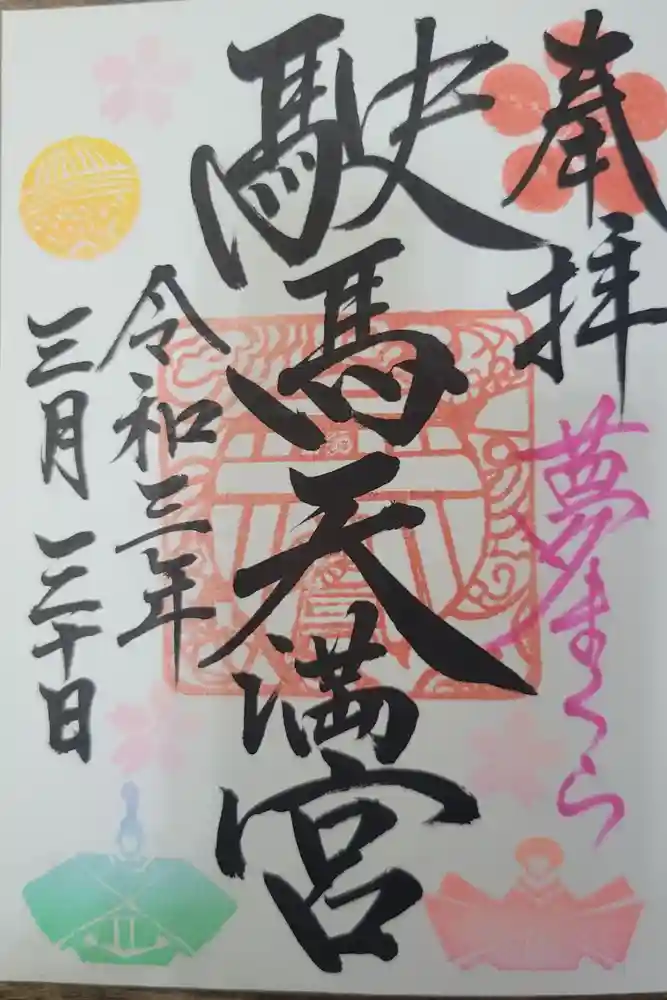 奉拝
夢まくら
駛馬天満宮
令和三年
三月三十日